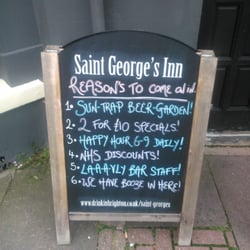 Saint George's Inn
REASON'S TO COME ON IN..
1. SUN-TRAP BEER-GARDEN!
2. 2 FOR £10 SPECIALS!
3. HAPPY HOUR 6-9 DAILY!
4. NHS DISCOUNTS!
5. LAAAVLY BAR STAFF!
6. WE HAVE BOOZE IN HERE!
www.drinkinbrighton.co.uk/saint-georges